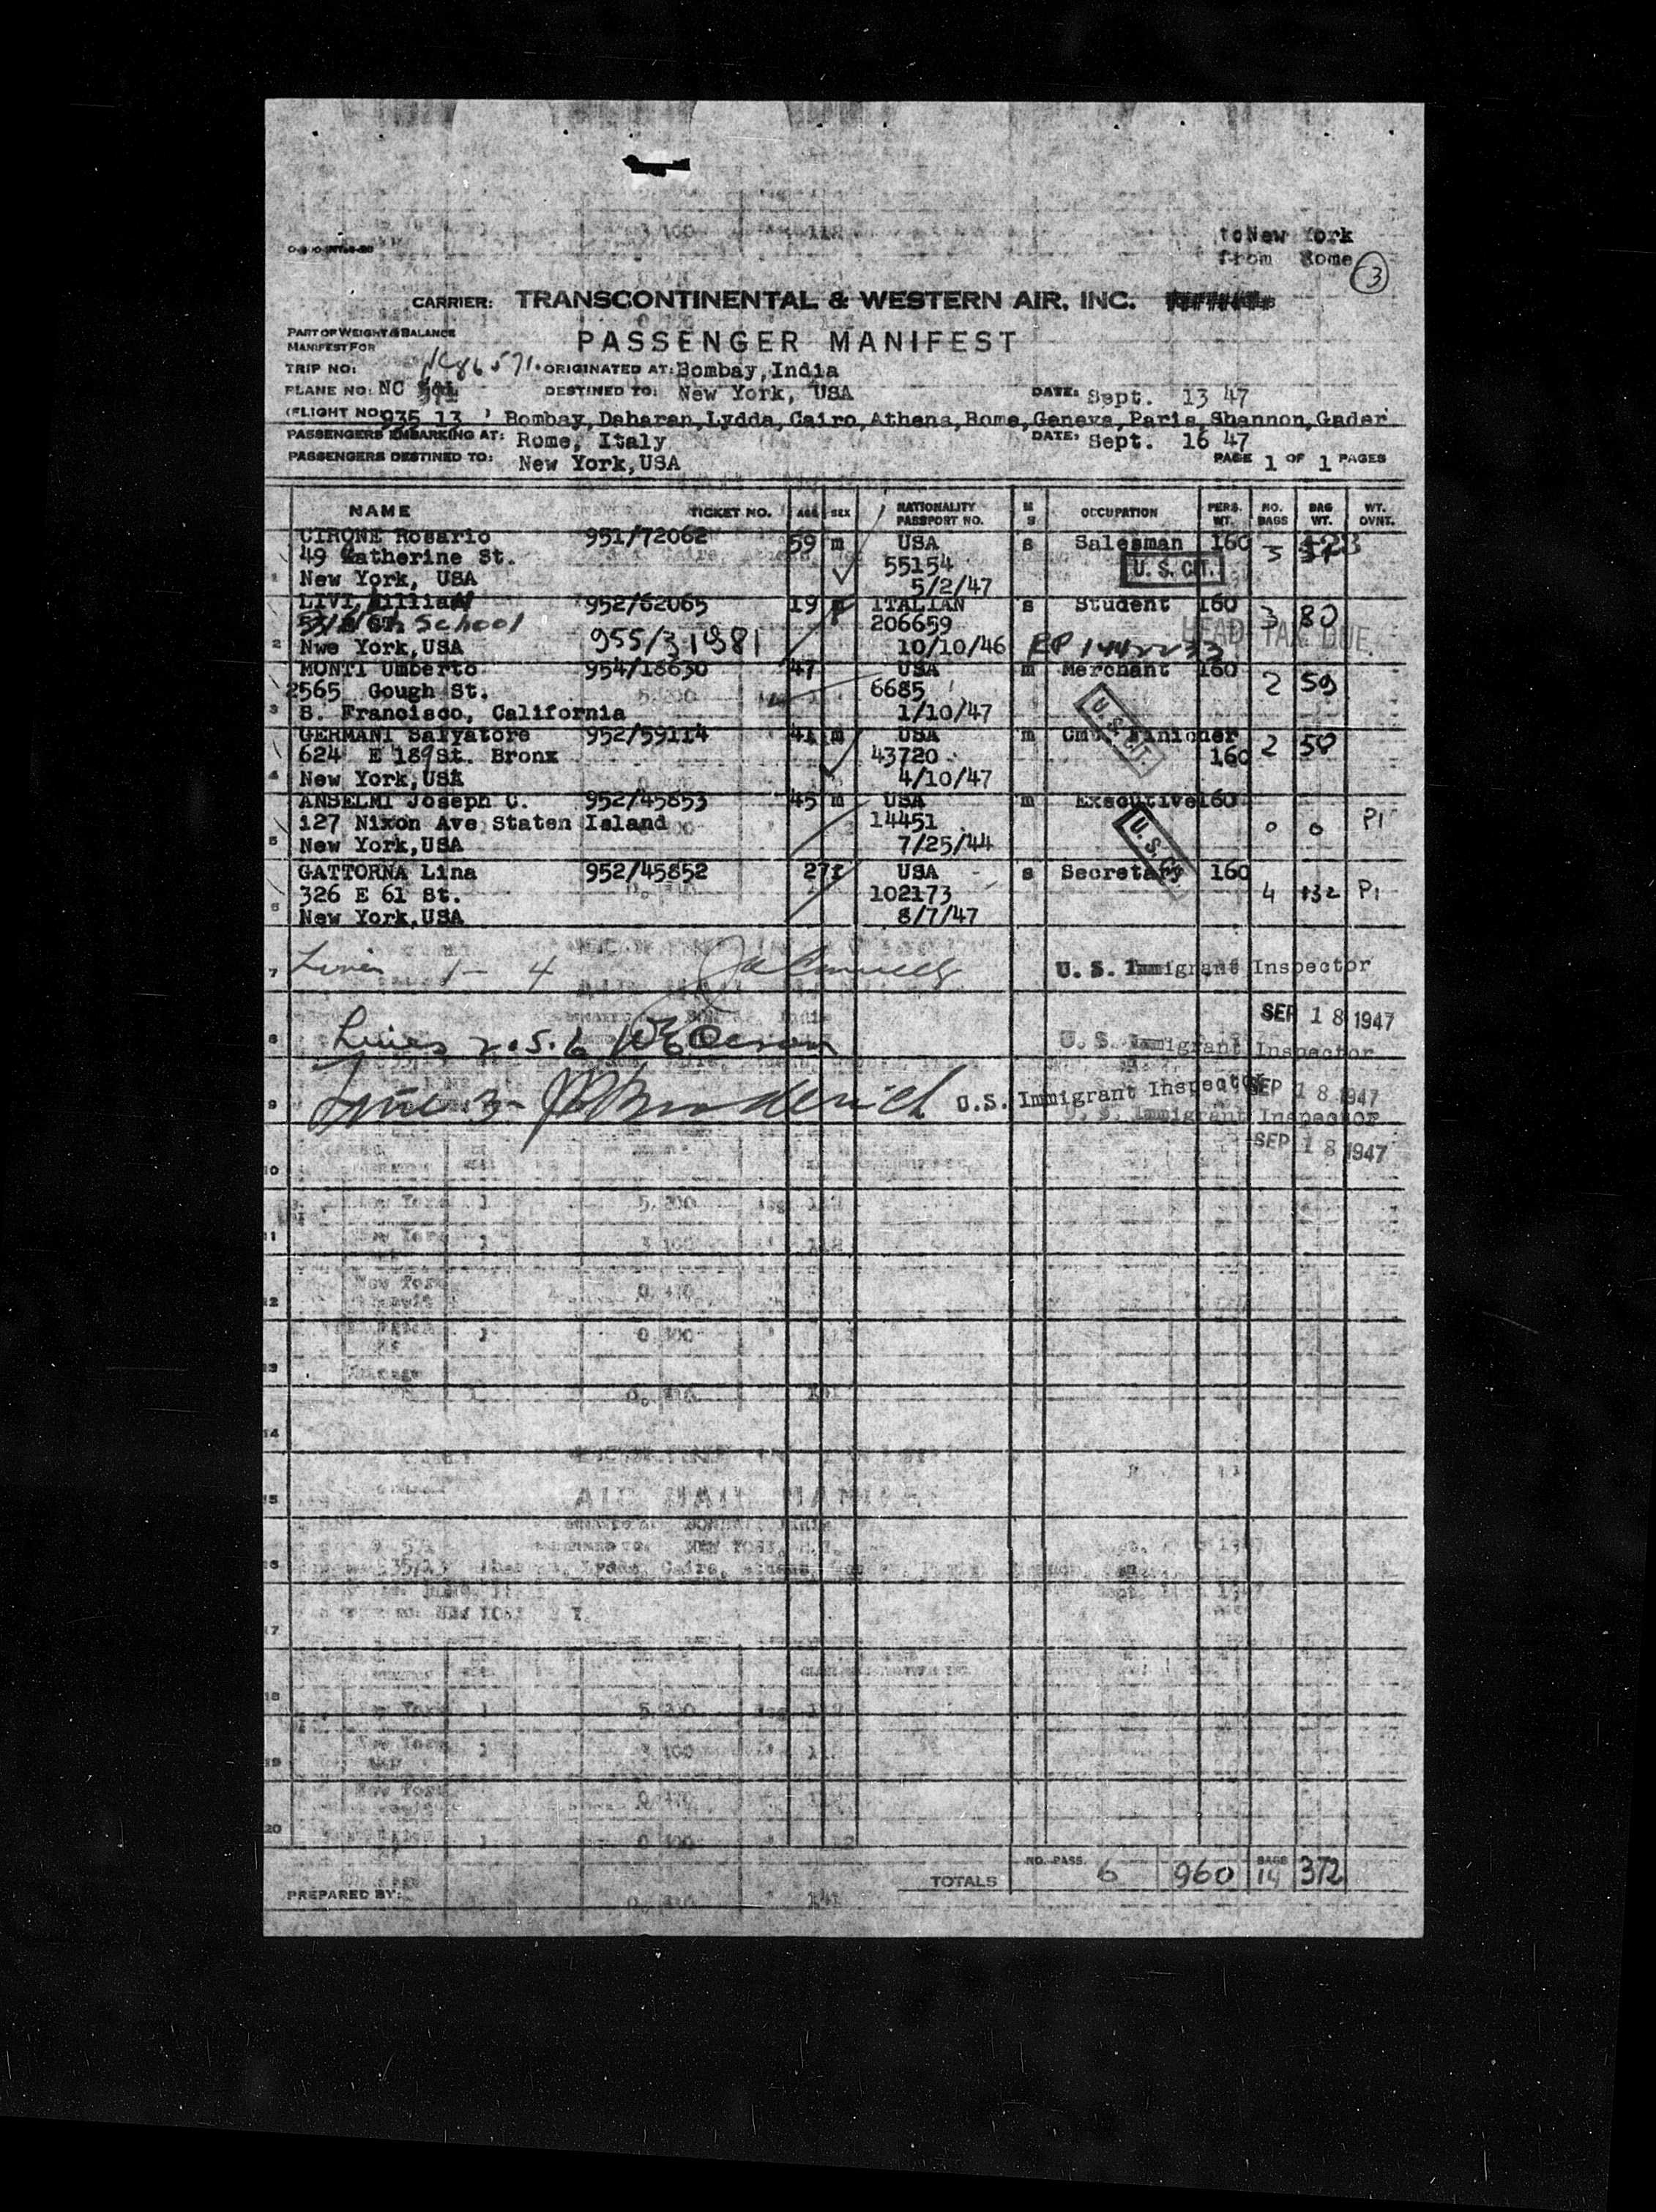 to New York
from Rome
3
CARRIER: TRANSCONTINENTAL & WESTERN AIR, INC.
PART OF WEIGHT & BALANCE
MANIFEST FOR
PASSENGER MANIFEST
TRIP NO: ORIGINATED AT: Bombay, India
PLANE NO: NC DESTINED TO: New York, USA DATE: Sept. 13 47
(FLIGHT NO 935 13 ) Bombay,Daharan,Lydda,Cairo,Athens,Rome,Geneva,Paris,Shannon,Gader
PASSENGERS EMBARKING AT: Rome, Italy DATE: Sept. 16 47
PASSENGERS DESTINED TO: New York,USA PAGE 1 OF 1 PAGES
NAME TICKET NO. AGE SEX NATIONALITY PASSPORT NO. M S OCCUPATION PERS. WT. NO. BAGS BAG WT. WT. OVNT.
CIRONE Rosario 951/72062 59 m USA s Salesman 160 3
49 Catherine St. 55154 U. S. CIT.
1 New York, USA 5/2/47
LIVI 952/62065 19 ITALIAN s Student 160 3 80
School 206659 HEAD TAX DUE.
2 Nwe York,USA 955/31981 10/10/46
MONTI Umberto 954/18630 47 USA m Merchant 160 2 59
2565 Gough St. 6685 U. S. CIT.
3 S. Francisco, California 1/10/47
GERMANI Salvatore 952/59114 41 m USA m 2 50
624 E 189 St. Bronx 43720 160
4 New York,USA 4/10/47
ANSELMI Joseph C. 952/45853 45 m USA m Executive 160 0 0 P1
127 Nixon Ave Staten Island 14451 U. S. CIT.
5 New York,USA 7/25/44
GATTORNA Lina 952/45852 27 f USA s Secretary 160 4 132 P1
326 E 61 St. 102173
6 New York,USA 8/7/47
7 Lines 1 - 4 U. S. Immigrant Inspector
SEP 18 1947
8 Lines 2.5.6 U. S. Immigrant Inspector
9 Line 3 - U.S. Immigrant Inspector SEP 18 1947
U. S. Immigrant Inspector
SEP 18 1947
10
11
12
13
14
15
16
17
18
19
20
TOTALS NO. PASS. 6 960 BAGS 14 372
PREPARED BY: